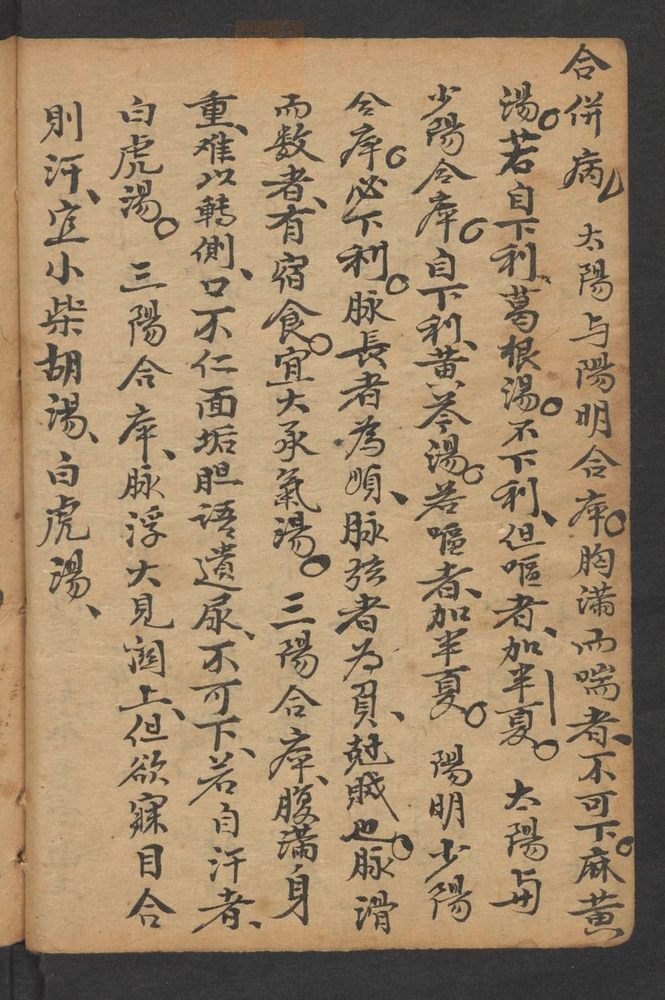 合併病 太陽与陽明合病。胸滿而喘者、不可下。麻黄
湯。若自下利葛根湯。不下利、但嘔者、加半夏。 太陽与
少陽合病。自下利、黄芩湯。若嘔者、加半夏。 陽明少陽
合病。必下利。脉長者為順、脉弦者为負、尅賊也。脉滑
而数者、有宿食。宜大承氣湯。三陽合病、腹滿身
重、难以轉側、口不仁面垢胆語遺尿、不可下、若自汗者、
白虎湯。 三陽合病、脉浮大見関上、但欲寐目合
則汗、宜小柴胡湯、白虎湯、